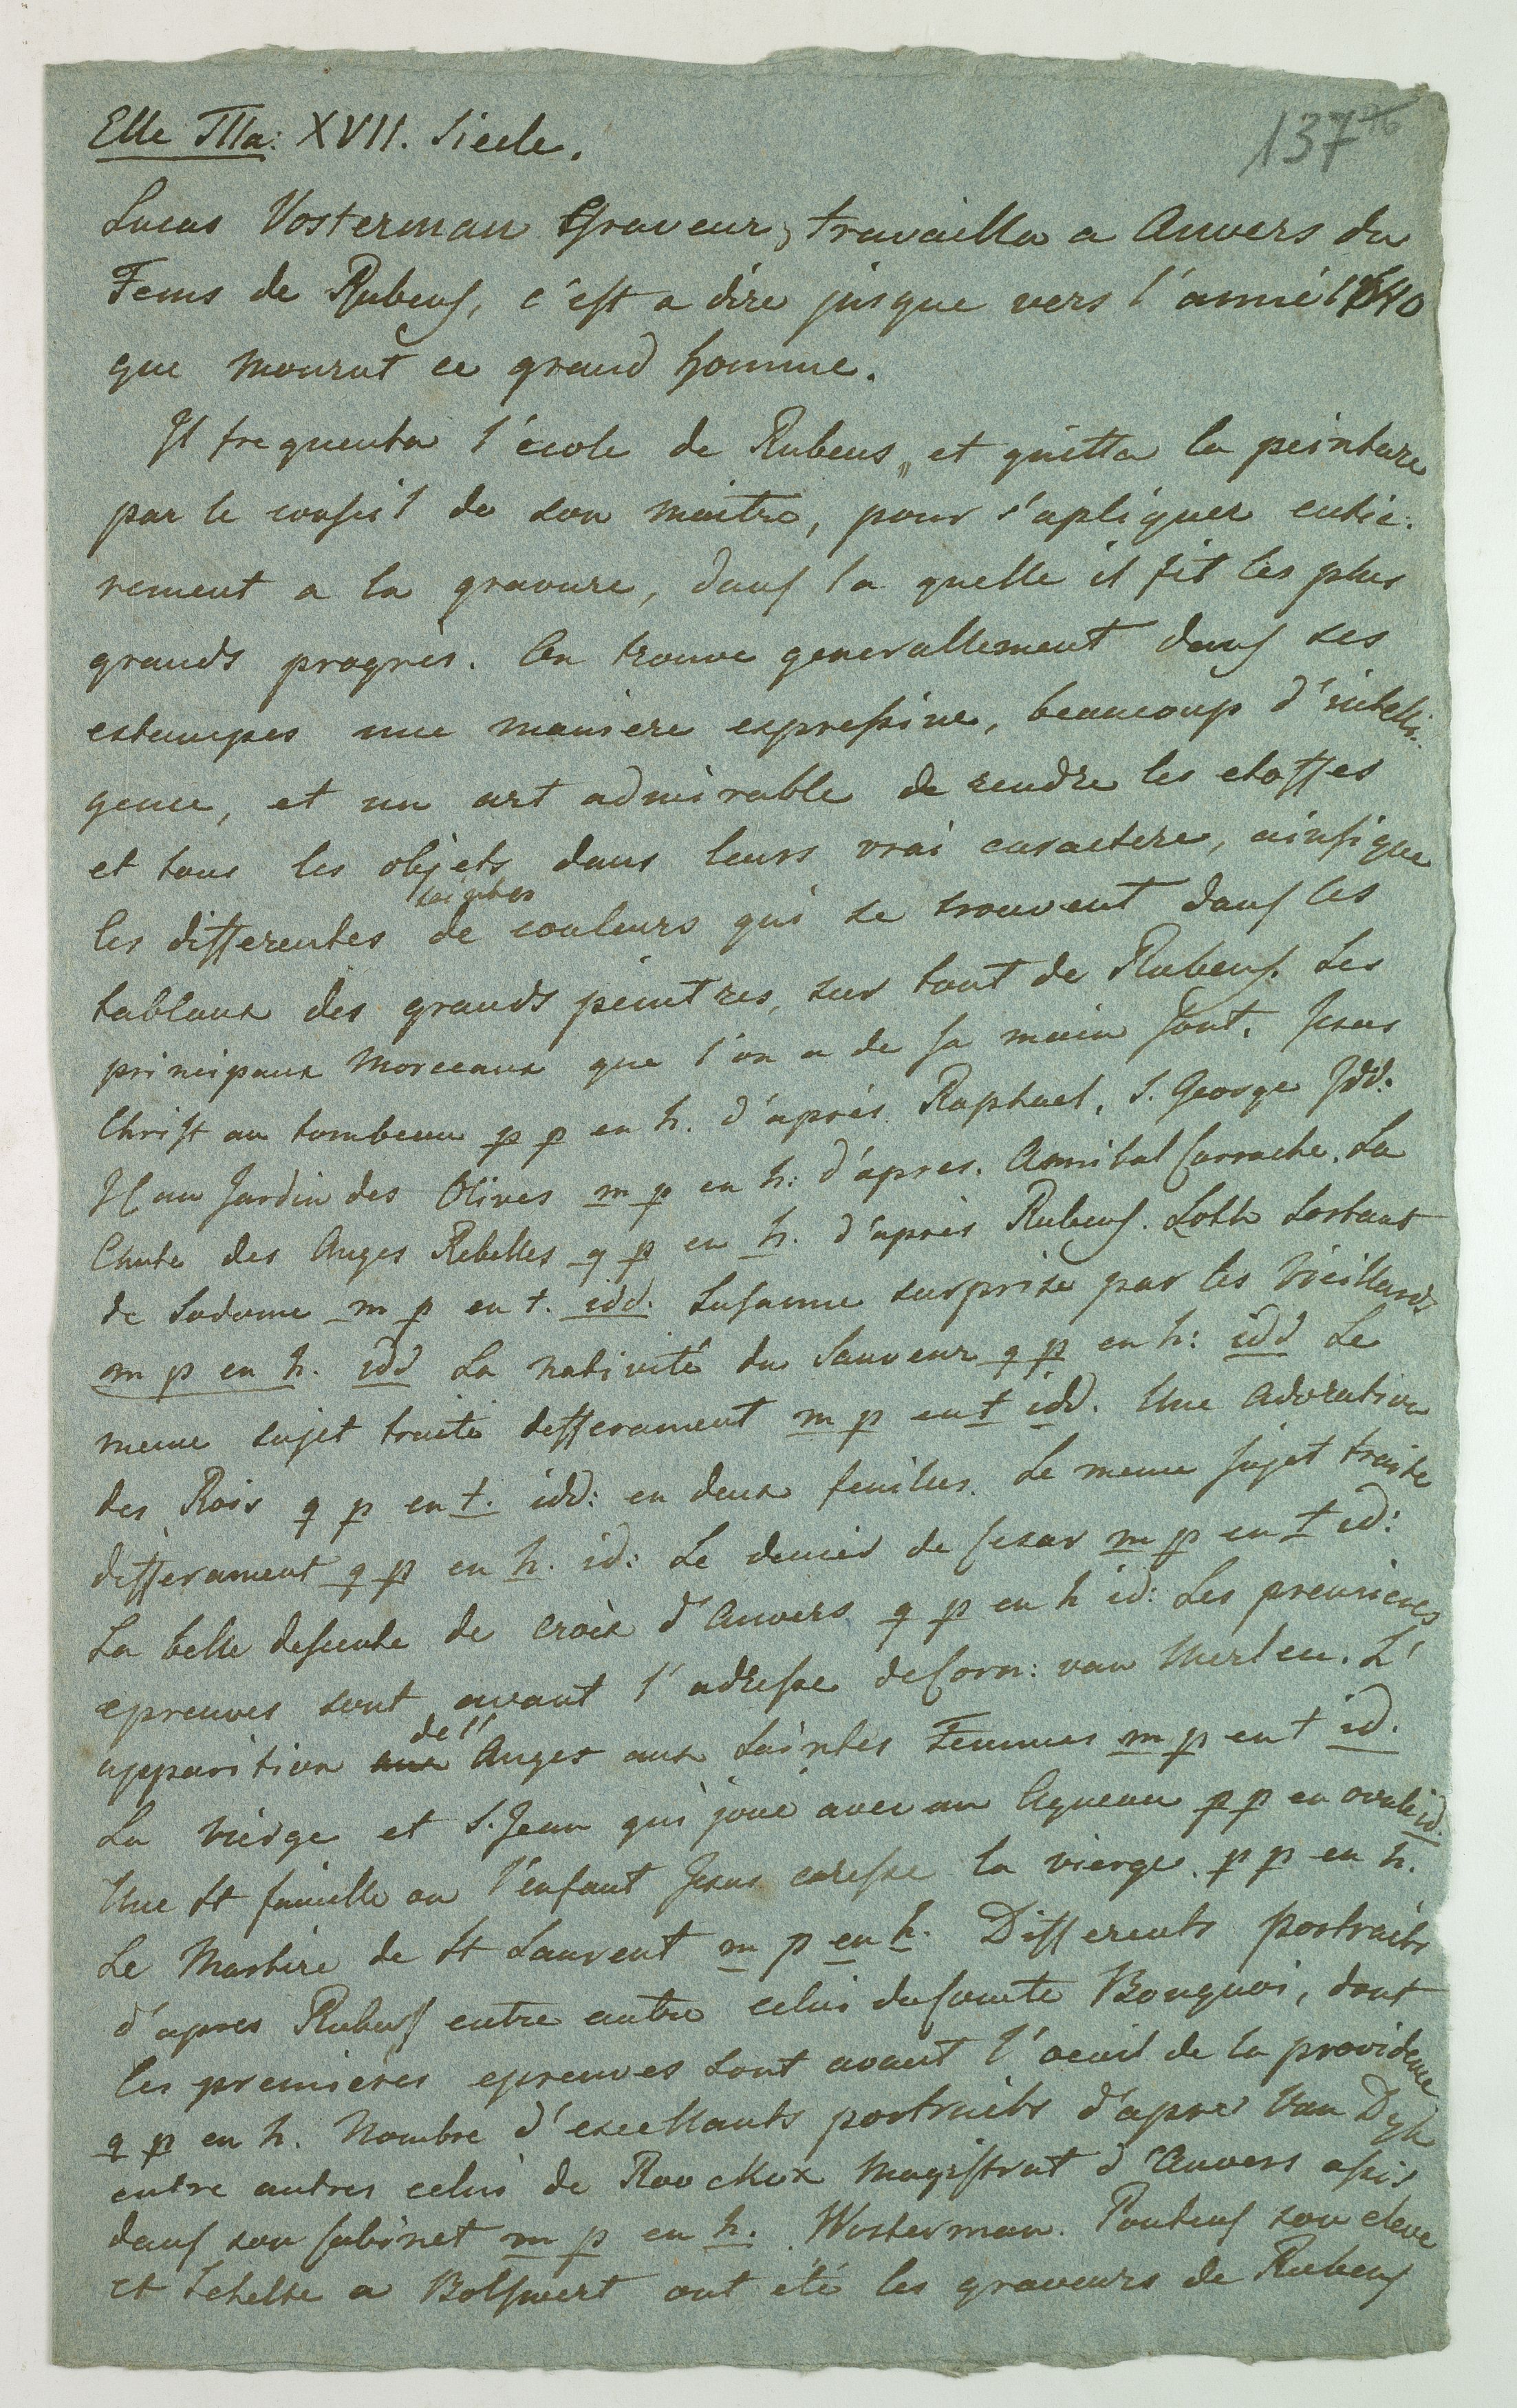 Elle IIIa: XVII. Siecle.
137
Lucas Vosterman Graveur, travailla a Anvers du
Tems de Rubens, c'est a dire jusque vers l'année 1640
que mourut ce grand homme.
Il frequenta l'école de Rubens, et quitta la peinture
par le conseil de son maitre, pour s'apliquer entie:
rement a la gravure, dans la quelle il fit les plus
grands progrès. On trouve generallement dans ses
estampes une maniere expressive, beaucoup d'intelli:
gence, et un art admirable de rendre les etoffes
et tous les objets dans leurs vrai caractere, ainsique
les differentes teintes de couleurs qui se trouvent dans les
tablaux des grands peintres, sur tout de Rubens. Les
principaux Morceaux que l'on a de sa main sont. Jesus
Christ au tombeau p p en h. d'après Raphael, S. George Idd.
Il au Jardin des Olives m p en h: d'apres. Annibal Carrache. La
Chute des Anges Rebelles g p en h. d'après Rubens. Loth Sortant
de Sodome m p en t. idd. Susanne surprise par les Vieillards
m p en h. idd La Nativité du Sauveur g p en h: idd Le
meme sujet traité defferament m p en t idd. Une Adoration
des Rois g p en t. idd: en deux feuilles. Le meme sujet traite
differament g p en h. id: Le denier de Cesar m p en t id:
La belle descente de croix d'Anvers g p en h id: Les premieres
epreuves sont avant l'adresse de Corn: van Merlen. L'
apparition aux de l' Anges aux Saintes Femmes m p en t id.
La Vierge et S. Jean qui joue avec un Agneau p p en ovale id.
Une St famille ou l'enfant Jesus caresse la vierge. p p en h.
Le Martire de St Laurent m p en h. Differents portraits
d'apres Rubens entre autre celui du Comte Bouquoi, dont
les premières epreuves sont avant l'oeuil de la providence
g p en h. Nombre d'excellants portraits d'apres Van Dyk
entre autres celui de Roockox Magistrat d'Anvers assis
dans son Cabinet m p en h. Wosterman. Pontius son eleve
et Schelte a Bolswert ont été les graveurs de Rubens